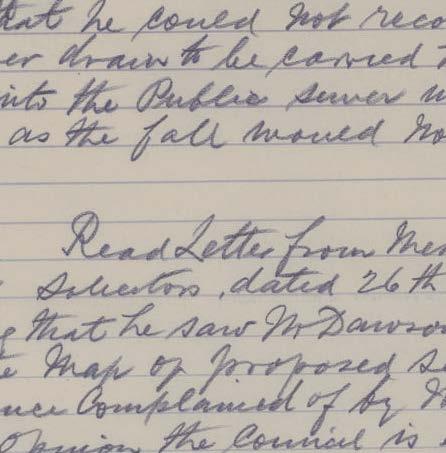 that he could not reco
er drain to be carried
into the Public sewer
as the fall would no
Read Letter from Me
Solicitors, dated 26th
g that he saw Mr Dawson
e Map of proposed Se
ence Complained of by M
Opinion the Council is